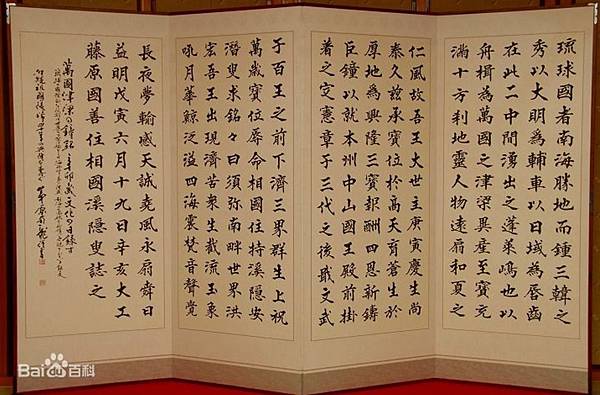 琉球國者南海勝地而鍾三韓之
秀以大明為輔車以日域為唇齒
在此二中間湧出之蓬萊嶋也以
舟楫為萬國之津梁異産至寶充
滿十方刹地靈人物遠扇和夏之
仁風故吾王大世主庚寅慶生尚
泰久茲承寶位於高天育蒼生於
厚地為興隆三寶報酬四恩新鑄
巨鐘以就本州中山國王殿前掛
著之定憲章于三代之後戢文武
于百王之前下濟三界群生上祝
萬歲寶位辱命相國住持溪隱安
潛叟求銘々曰須弥南畔世界洪
宏吾王出現濟苦衆生截流玉象
吼月華鯨泛溢四海震梵音聲覺
長夜夢輸感天誠堯風永扇舜日
益明戊寅六月十九日辛亥大工
藤原國善住相國溪隱叟誌之
萬國津梁の鐘銘
Bai百科